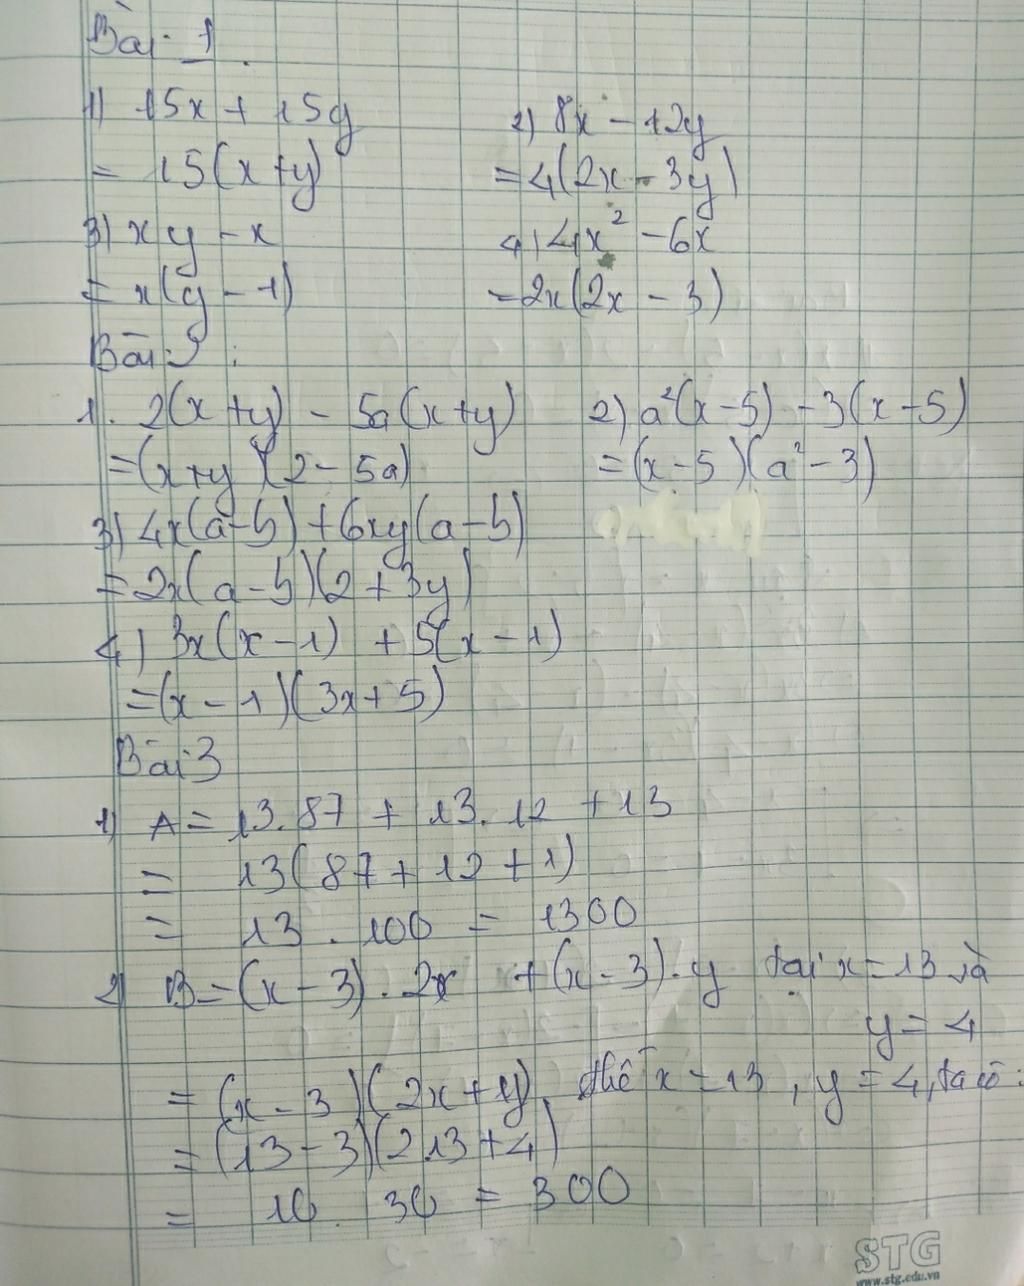 Bài 1
1) 15x + 15y 2) 8x - 12y
= 15(x+y) = 4(2x - 3y)
3) xy - x 4) 4x² - 6x
= x(y - 1) = 2x(2x - 3)
Bài 2:
1. 2(x+y) - 5a(x+y) 2) a²(x-5) - 3(x-5)
= (x+y)(2 - 5a) = (x-5)(a²-3)
3) 4x(a-b) + 6xy(a-b)
= 2x(a-b)(2+3y)
4) 3x(x-1) + 5(x-1)
= (x-1)(3x+5)
Bài 3
1) A = 13.87 + 13.12 + 13
= 13(87 + 12 + 1)
= 13 . 100 = 1300
2) B = (x-3).2x + (x-3).y tại x = 13 và
y = 4
= (x-3)(2x+y) thế x = 13, y = 4, ta có:
= (13-3)(2.13+4)
= 10 . 30 = 300
STG
www.stg.edu.vn